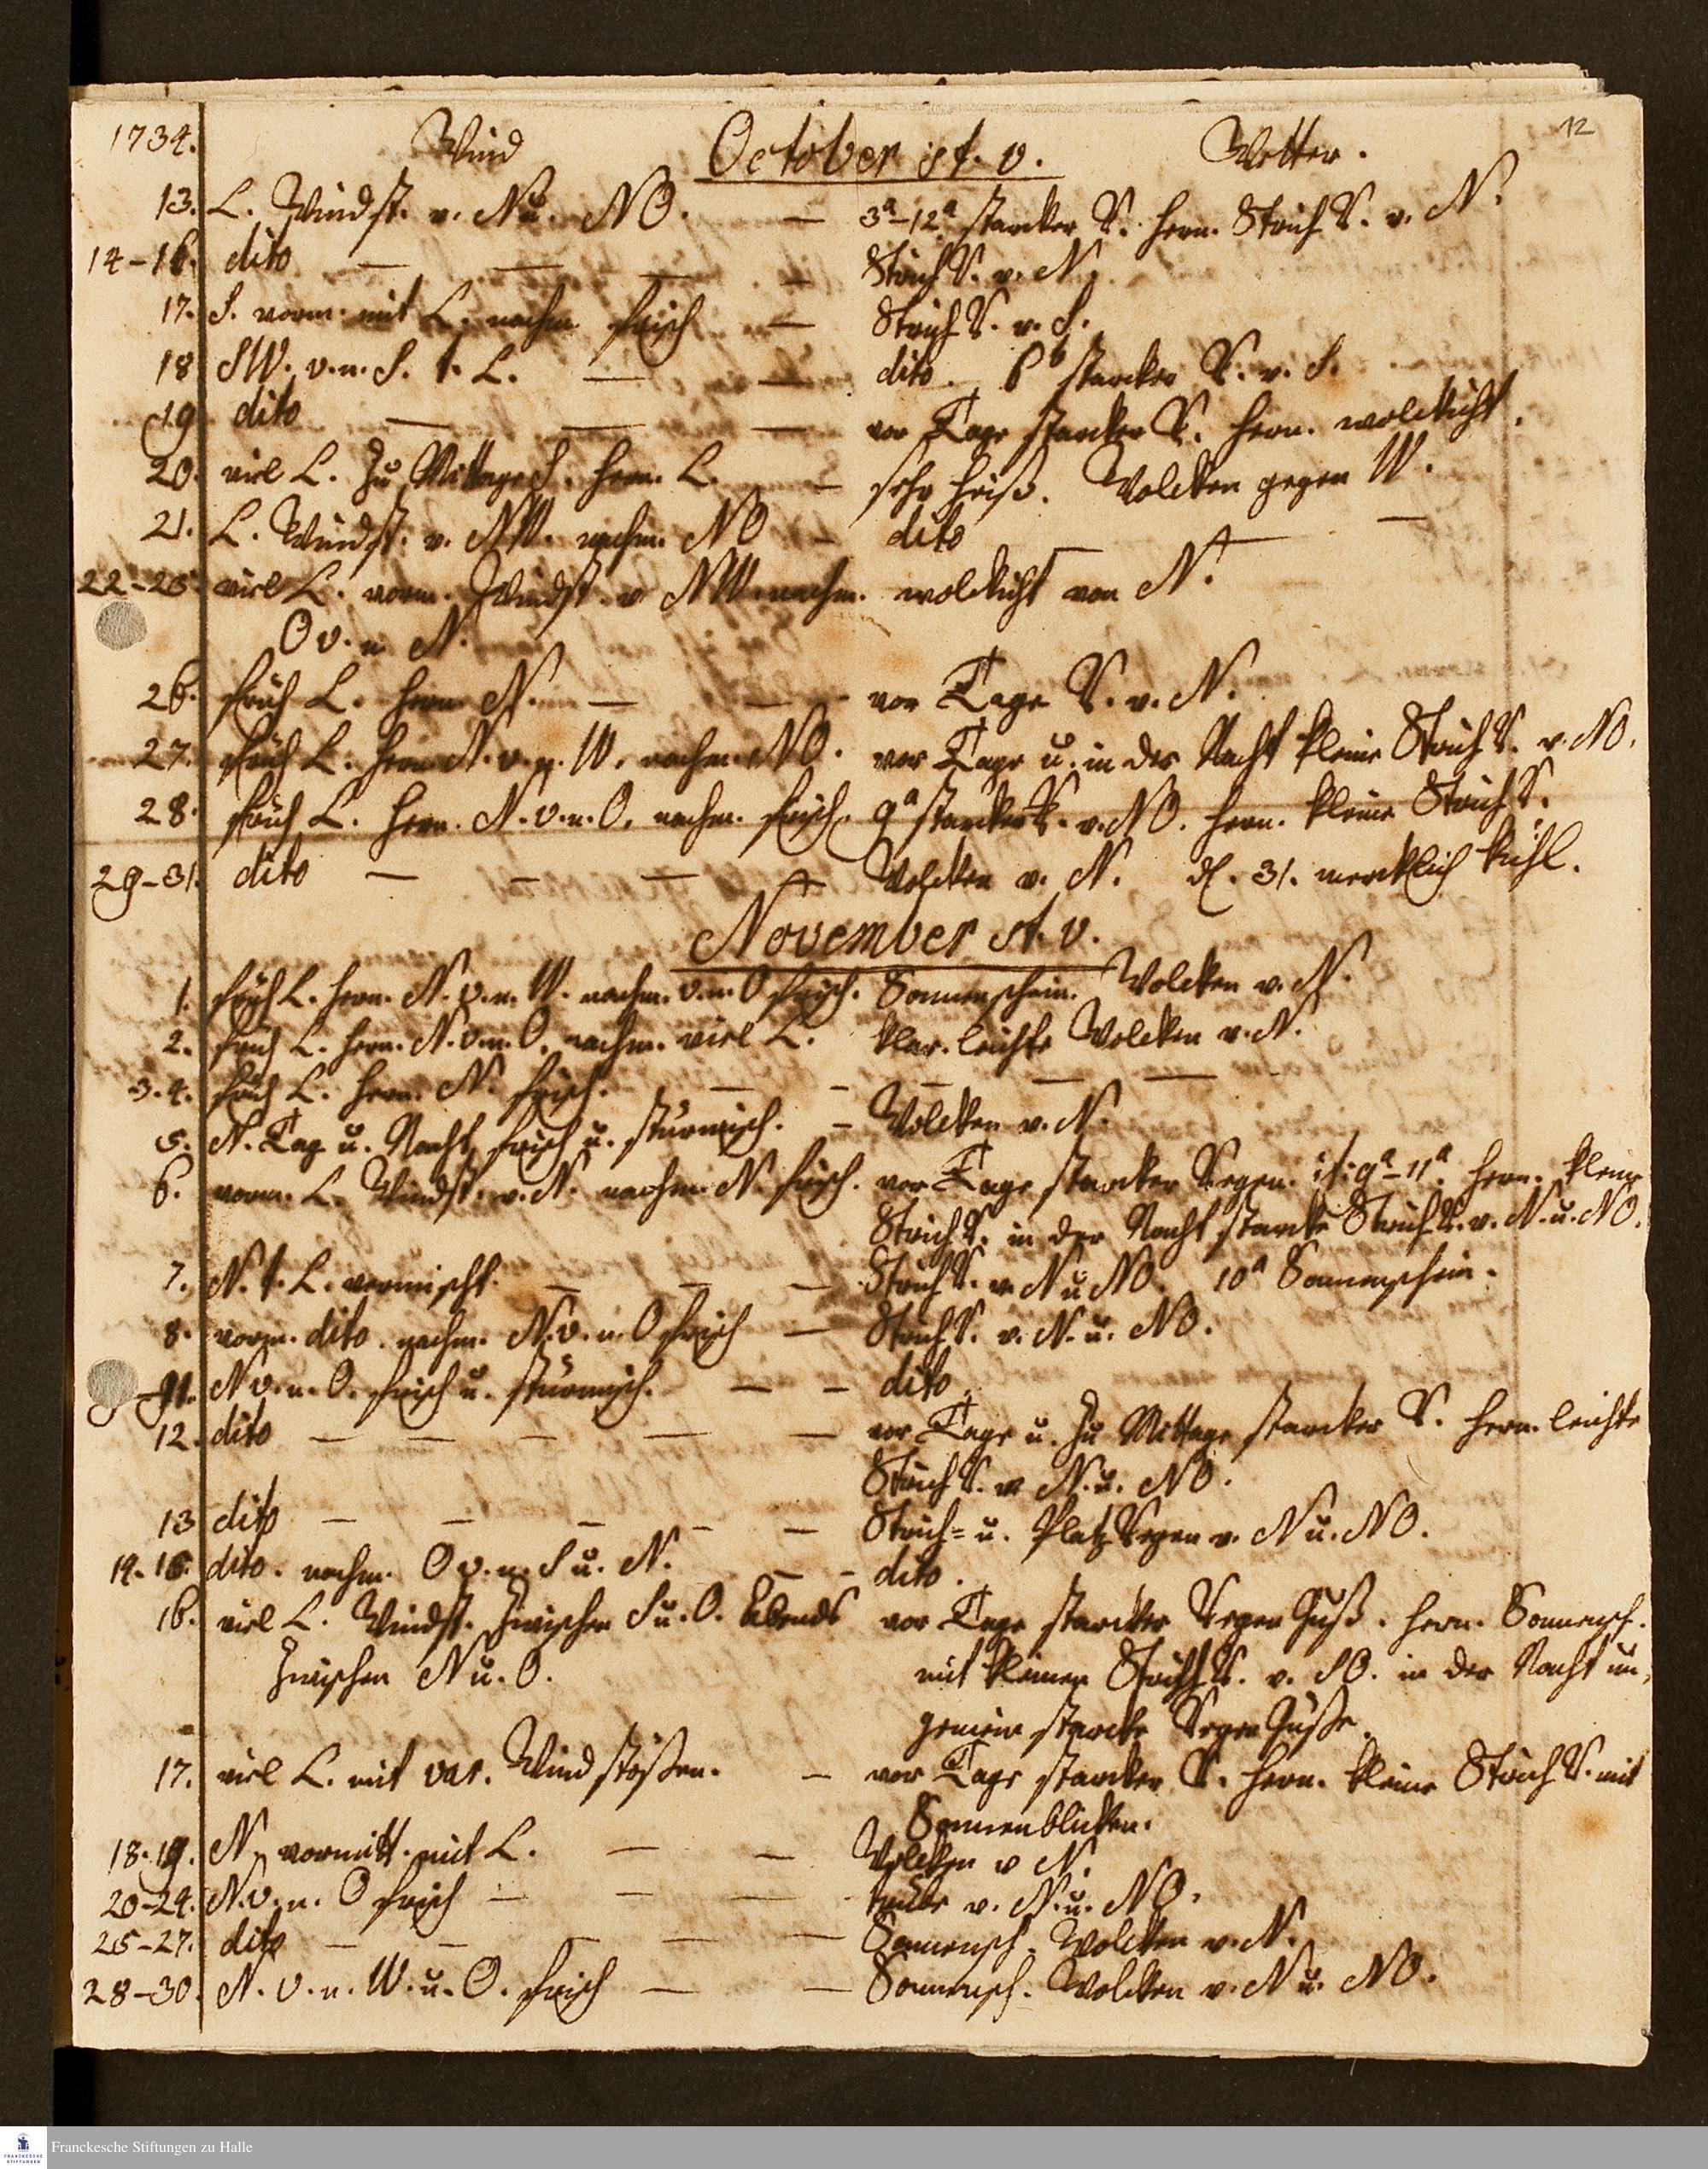 12
1734. Wind October st. v. Wetter.
13. L. Windst. v. N u. NO. — 3ª–12ª starcker R. hern. Strich R. v. N.
14–16. dito — — — — Strich R. v. N.
17. S. vorm. mit L. nachm. frisch — Strich R. v. S.
18 SW. v. n. S. t. L. — — dito. 6b starcker R. v. S.
19 dito — — — vor Tage starcker R. hern. wolckicht.
20. viel L. zu Mittage S. hern. L. — sehr heiss. Wolcken gegen W.
21. L. Windst. v. NW. nachm. NO — dito — —
22–25. viel L. vorm. Windst. v NW. nachm. wolckicht von N.
O v. n N.
26. früh L. hern N. — — vor Tage R. v. N.
27. früh L. hern N. v. n. W. nachm. NO. vor Tage u. in der Nacht kleine Strich R. v. NO.
28. früh L. hern. N. v. n. O. nachm. frisch. 9ª starcker R. v. NO. hern. kleine Strich R.
29–31. dito — — — — Wolcken v. N. d. 31. mercklich kühl.
November st. v.
1. früh L. hern. N. v. n. W. nachm. v. n. O frisch. Sonnenschein. Wolcken v. N.
2. früh L. hern. N. v. n. O. nachm. viel L. klar. leichte Wolcken v. N.
3. 4. früh L. hern. N. frisch. — — — — —
5. N. Tag u. Nacht frisch u. stürmisch. — Wolcken v. N.
6. vorm. L. Windst. v. N. nachm. N. frisch. vor Tage starcker Regen. it. 9ª–11ª. hern. kleine
Strich R. in der Nacht starcke Strich R. v. N. u. NO.
7. N. t. L. vermischt. — — — Strich R. v. N u NO. 10ª Sonnenschein.
8. vorm. dito. nachm. N. v. n. O frisch — Strich R. v. N. u. NO.
–11. N v. n. O. frisch u. stürmisch. — — dito
12. dito — — — — — vor Tage u. zu Mittage starcker R. hern. leichte
Strich R. v. N. u. NO.
13 dito — — — — — Strich= u. Platz Regen v. N u. NO.
14–15. dito. nachm. O v. n. S u. N. — — dito.
16. viel L. Windst. zwischen S u. O. Abends vor Tage starcker Regen Guß. hern. Sonnensch.
zwischen N u. O. mit kleinen Strich R. v. SO. in der Nacht un,
gemein starcke Regen Güße.
17. viel L. mit var. Wind stößen. — vor Tage starcker R. hern. kleine Strich R. mit
Sonnenblicken.
18–19. N. vormitt. mit L. — — Wolcken v N.
20–24. N. v. n. O frisch — — — trübe v. N. u. NO.
25–27. dito — — — — — Sonnensch. Wolcken v. N.
28–30. N. v. n. W. u. O. frisch — — Sonnensch. Wolcken v. N u. NO.
Franckesche Stiftungen zu Halle
FRANCKESCHE
STIFTUNGEN